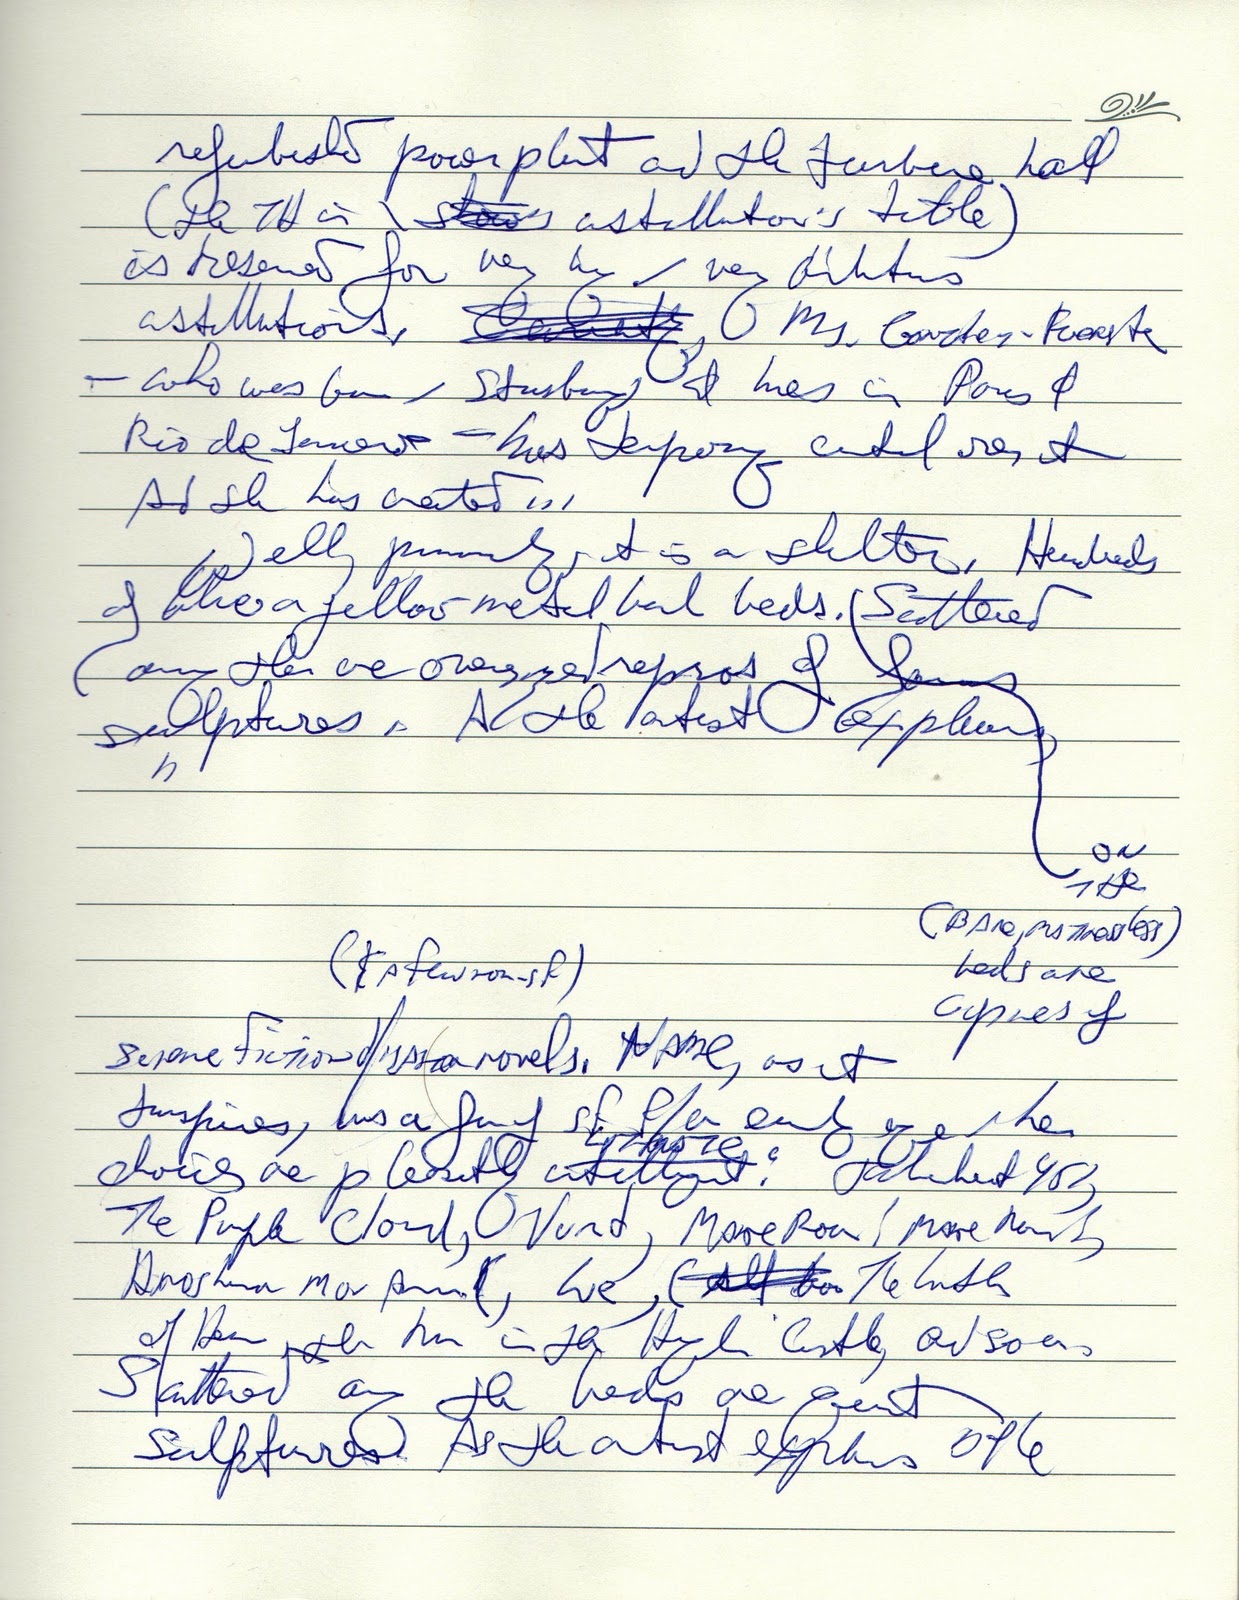 refurbished power plant and the turbine hall
(the TH in installation's title)
is reserved for very big / very
installations. Ms. Gonzalez-Foerster
— who was born / Strasbourg lives in Paris &
Rio de Janeiro — has temporary
And she has created ...
Well, it is a shelter. Hundreds
of blue & yellow metal bunk beds. (Scattered
among them are oversized repros of famous
sculptures. As the artist explains
ON
THE
(BARE, MATTRESSLESS)
beds are
copies of
(& a few non-sf)
science fiction novels. as it
transpires, was a fan of sf
choices are pleasantly Fahrenheit 451,
The Purple Cloud, Vurt, Make Room! Make Room!,
Hiroshima mon amour, We, The Lathe
of Heaven, The Man in the High Castle, and so on.
Scattered among the beds are giant
sculptures. As the artist explains